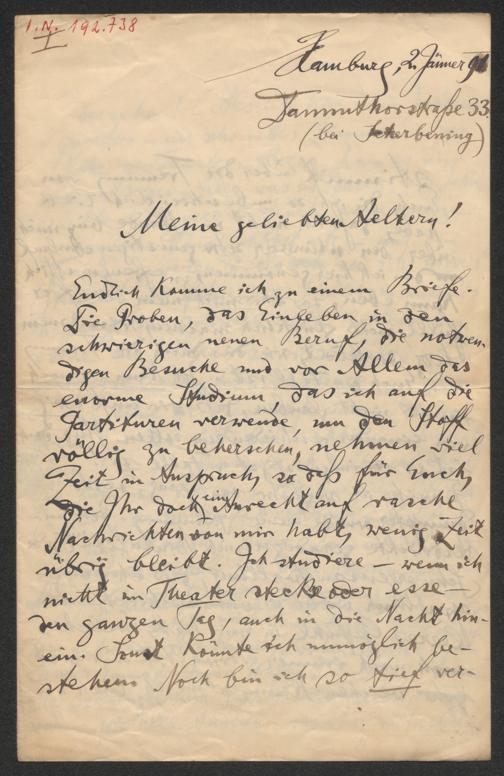 I.N. 192.738
Hamburg, 2. Jänner 91
Dammthorstraße 33
(bei Scherbening)
Meine geliebten Aeltern!
Endlich komme ich zu einem Briefe.
Die Proben, das Eingeben in den
schwierigen neuen Beruf, die notwen-
digen Besuche und vor Allem das
enorme Studium, das ich auf die
Partituren verwende, um den Stoff
völlig zu beherschen, nehmen viel
Zeit in Anspruch, so daß für Euch,
die Ihr doch ein Anrecht auf rasche
Nachrichten von mir habt, wenig Zeit
übrig bleibt. Ich studiere – wenn ich
nicht im Theater stecke oder esse –
den ganzen Tag, auch in die Nacht hin-
ein. Sonst könnte ich unmöglich be-
stehen. Noch bin ich so tief ver-